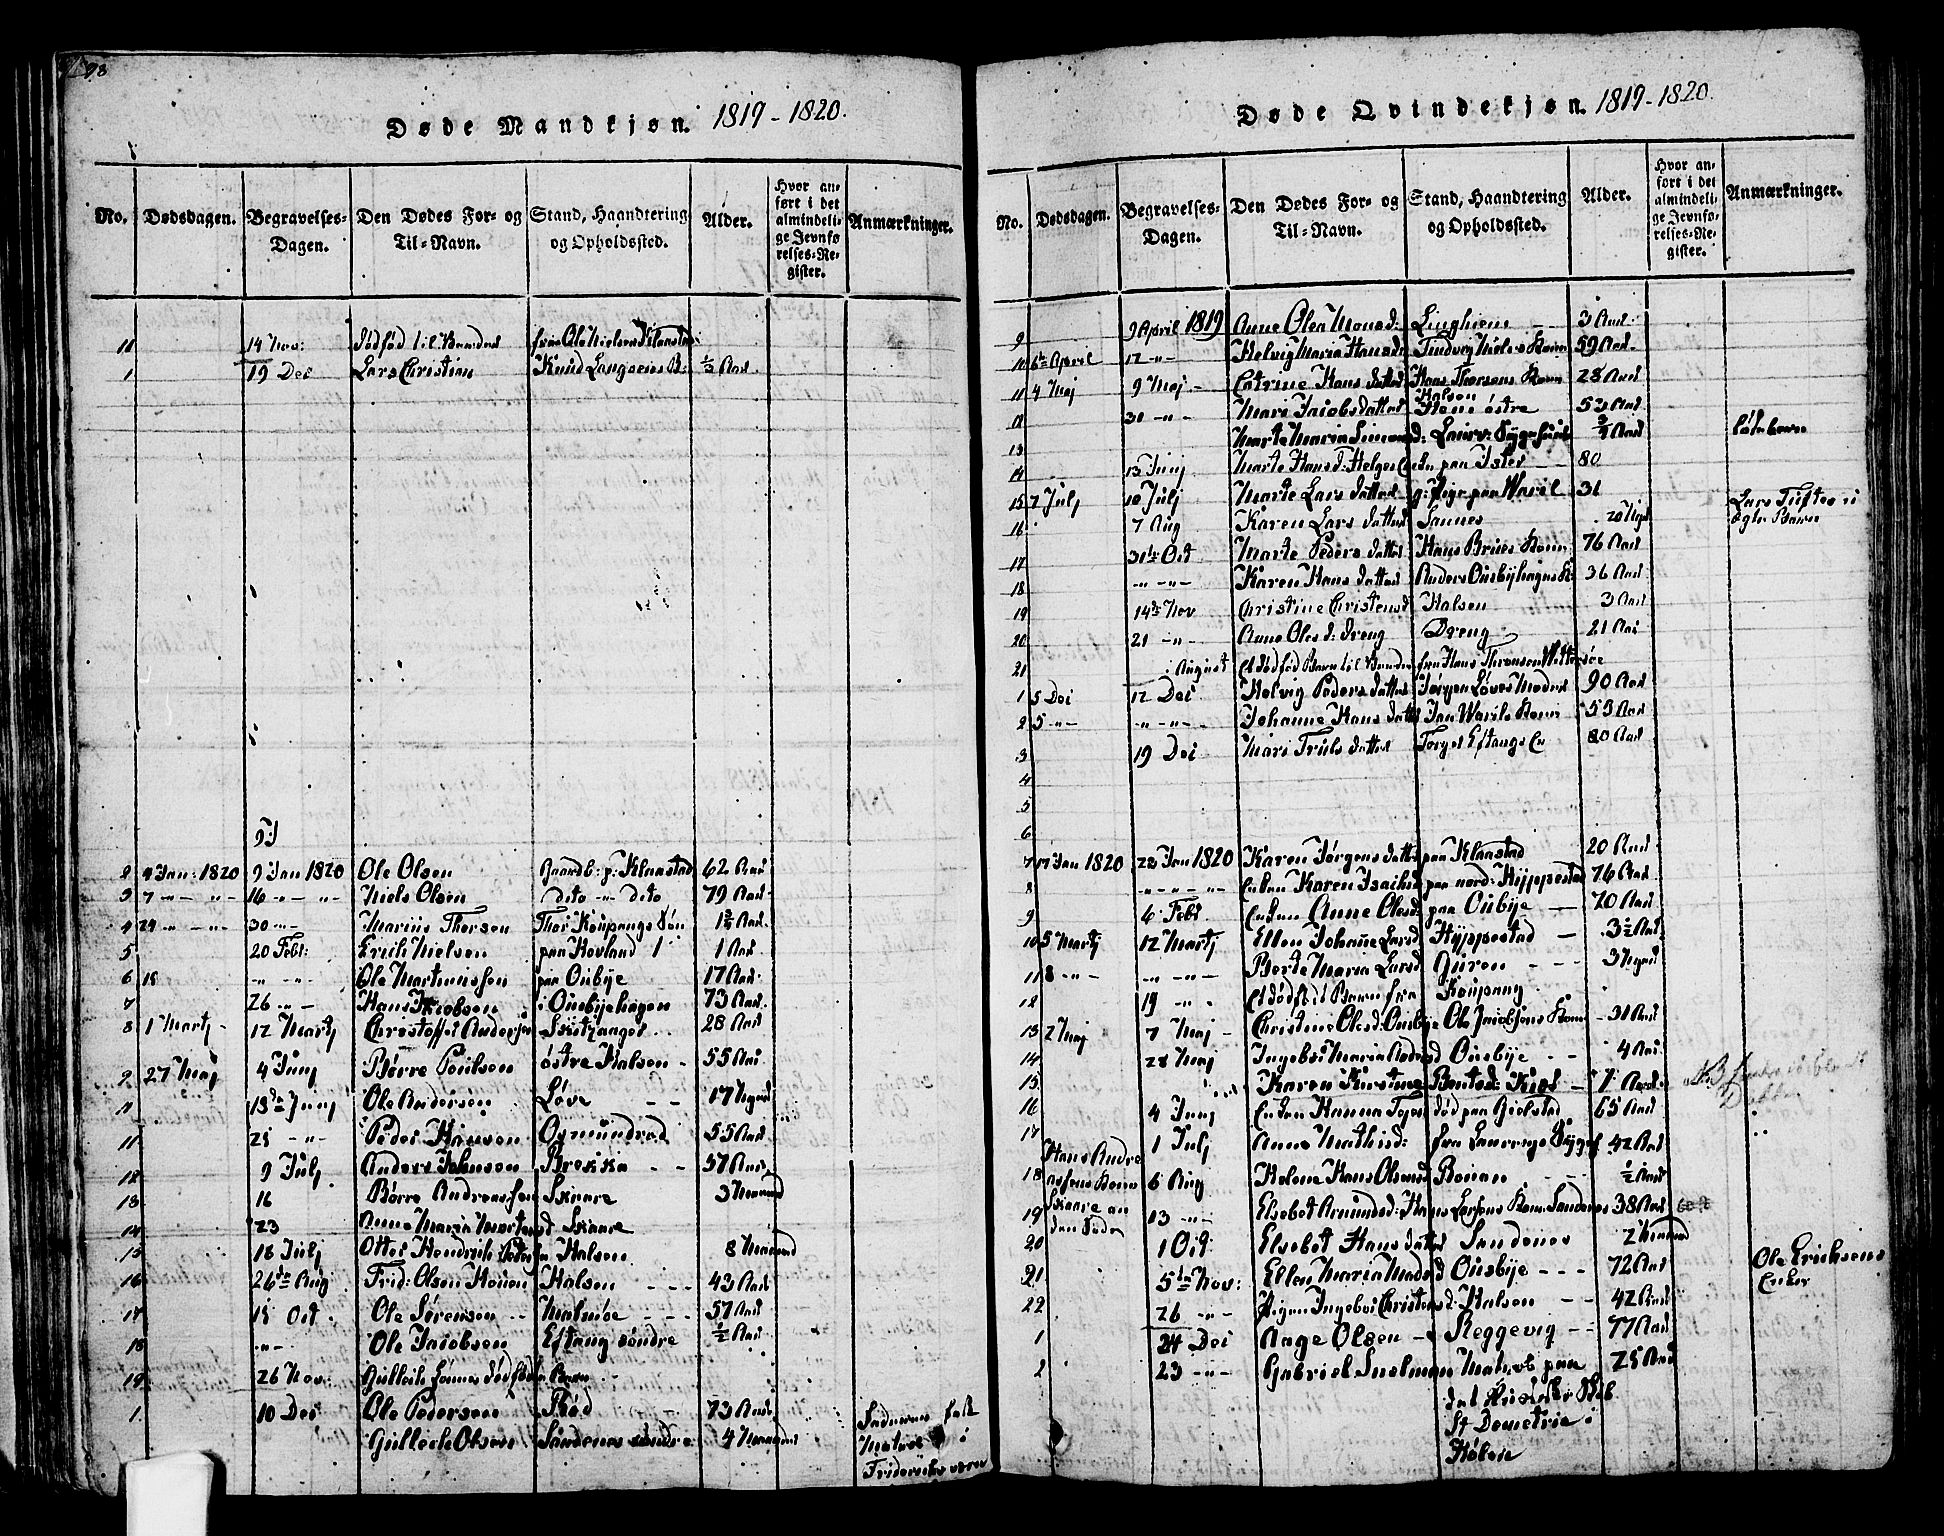 98
Døde Mandkjøn. 1819-1820.
No. Dødsdagen. Begravelses-Dagen. Den Dødes For- og Til-Navn. Stand, Haandtering og Opholdssted. Alder. Hvor anført i det almindelige Jevnførelses-Register. Anmærkninger.
11 14 Nov: Dødfød til fra Ole Nielsen
1 19 Dec Lars Christian Knud ½ Aar
2 4 Jan: 1820 9 Jan 1820 Ole Olsen Gaardb: p: Klaastad 62 Aar
3 7 -"- -"- 16 -"- -"- Niels Olsen dito -"- dito 79 Aar
4 24 -"- -"- 30 -"- Marius Thorsen Thor Koupangs Søn 1½ Aar
5 20 Febr: Erich Nielsen paa Hovland 1 Aar
6 18 -"- -"- Ole Martinussen paa Ousbye 17 Aar
7 26 -"- Hans Jacobsen i Ousbyehagen 73 Aar
8 1 Martj 12 Martj Christoffer Andersen 28 Aar
9 27 Maj 4 Junj Børre Poulsen østre Halsen 55 Aar
11 13de Junj Ole Andersen Løve 17
11 25 -"- Peder Hansen Osmundrød 55 Aar
12 9 Julj Anders Johnsen Brekka 57 Aar
13 16 Børre Andreassen Skaare 3 Maaned
14 23 Anne Maria Skaare
15 18 Julj Otter Hendrik Halsen 8 Maaned
16 26de Aug Frid: Olsen Houen Halsen 43 Aar
17 15 Oct Ole Sørensen Malmøe 57 Aar
18 -"- Ole Jacobsen Eftang søndre ½ Aar
19 26 Nov: Gullech Barn
1 10 Dec Ole Pedersen Rød 73 Aar
Gullech Olsen Sandenes søndre 4 Maaned
Faderens
Matros i
Frideriks værn
Døde Qvindekjøn. 1819-1820.
No. Dødsdagen. Begravelses-Dagen. Den Dødes For- og Til-Navn. Stand, Haandtering og Opholdssted. Alder. Hvor anført i det almindelige Jevnførelses-Register. Anmærkninger.
9 9 April 1819 Anne Olea Monsd: 3 Aar
10 6te April 12 -"- Helvig Maria Hansd Niels Kone 59 Aar
11 4 Maj 9 Maj Catrine Hans datter Hans Thorsens Kone 28 Aar
Halsen
12 30 -"- Mari Jacobsdatter østre 53 Aar
13 Marte Maria Simonsd: Laurv: Sygehuus Aar
14 13 Junj Marte Hansd: Helges Enke paa Istre 80
15 7 Julj 10 Julj Marte Lars datter g: Pige paa Waril 31
16 7 Aug Karen Lars datter Sannes 20
17 31te Oct Marte Peders datter Hans Kone 76 Aar
18 -"- -"- Karen Hans datter Anders Ousbyhagens K: 36 Aar
19 14de Nov Christine Christensd Halsen 3 Aar
20 21 -"- Anne Olesd: Dreng Dreng 21 Aar
21 August Et dødfød Barn til fra Hans Thoresen
1 5 Dec 12 Dec Helvig Peders datter Jørgen Løves Moder 90 Aar
2 5 -"- -"- -"- Johanne Hans datter Jan Warils Kone 53 Aar
3 19 Dec Mari Truls datter Torger Eftangs En 80 Aar
4
5
6
7 17 Jan 1820 23 Jan 1820 Karen Jørgens datter paa Klaastad 20 Aar
8 -"- -"- -"- Enken Karen Isachsd paa nord: Hyppestad 76 Aar
9 6 Febr Enken Anne Olesd: paa Ousbye 70 Aar
10 5 Martj 12 Martj Ellen Johanne Larsd Hyppestad 3½ Aar
11 8 -"- -"- -"- Berte Maria Larsd Guren 3
12 19 -"- Et dødfød Barn fra Koupang
13 2 Maj 7 Maj Christine Olesd: Ousbye Ole Jacobsens Kone 31 Aar
14 28 Maj Ingebor Maria Ousbye 4 Aar
15 Karen Kirstine Bentsd: 1 Aar
16 4 Junj Enken Hanna død paa Gjelstad 65 Aar
17 1 Julj Anne Mathisd: fra Laurvigs Sygeh 42 Aar
18 6 Aug Helene Hans Olsens Roenen ½ Aar
Hans Andre
assens Kone
Skaare an
den Side
19 13 -"- Elsebet Amundsd: Hans Larsens Kone Sandenes 38 Aar
20 1 Oct Elsebet Hans datter Sandenes 2 Maaned
21 5te Nov: Ellen Maria Madsd Ousbye 72 Aar
Ole Erichsens
Enke
22 26 -"- Pigen Ingebor Christensd: Halsen 42 Aar
1 24 Dec Aage Olsen Reggevig 77 Aar
2 23 -"- Gabriel Matros paa 25 Aar
det Russiske Skib
St Demetrie i